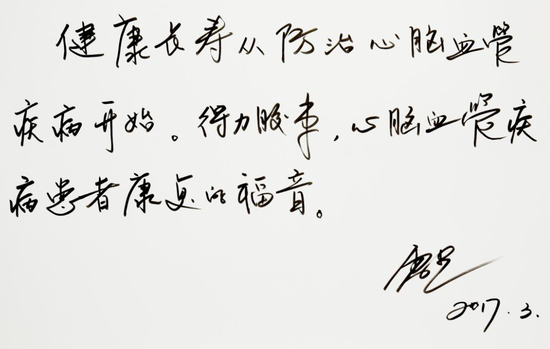 健康长寿从防治心脑血管
疾病开始。得力胶囊，心脑血管疾
病患者康复的福音。
2017.3.